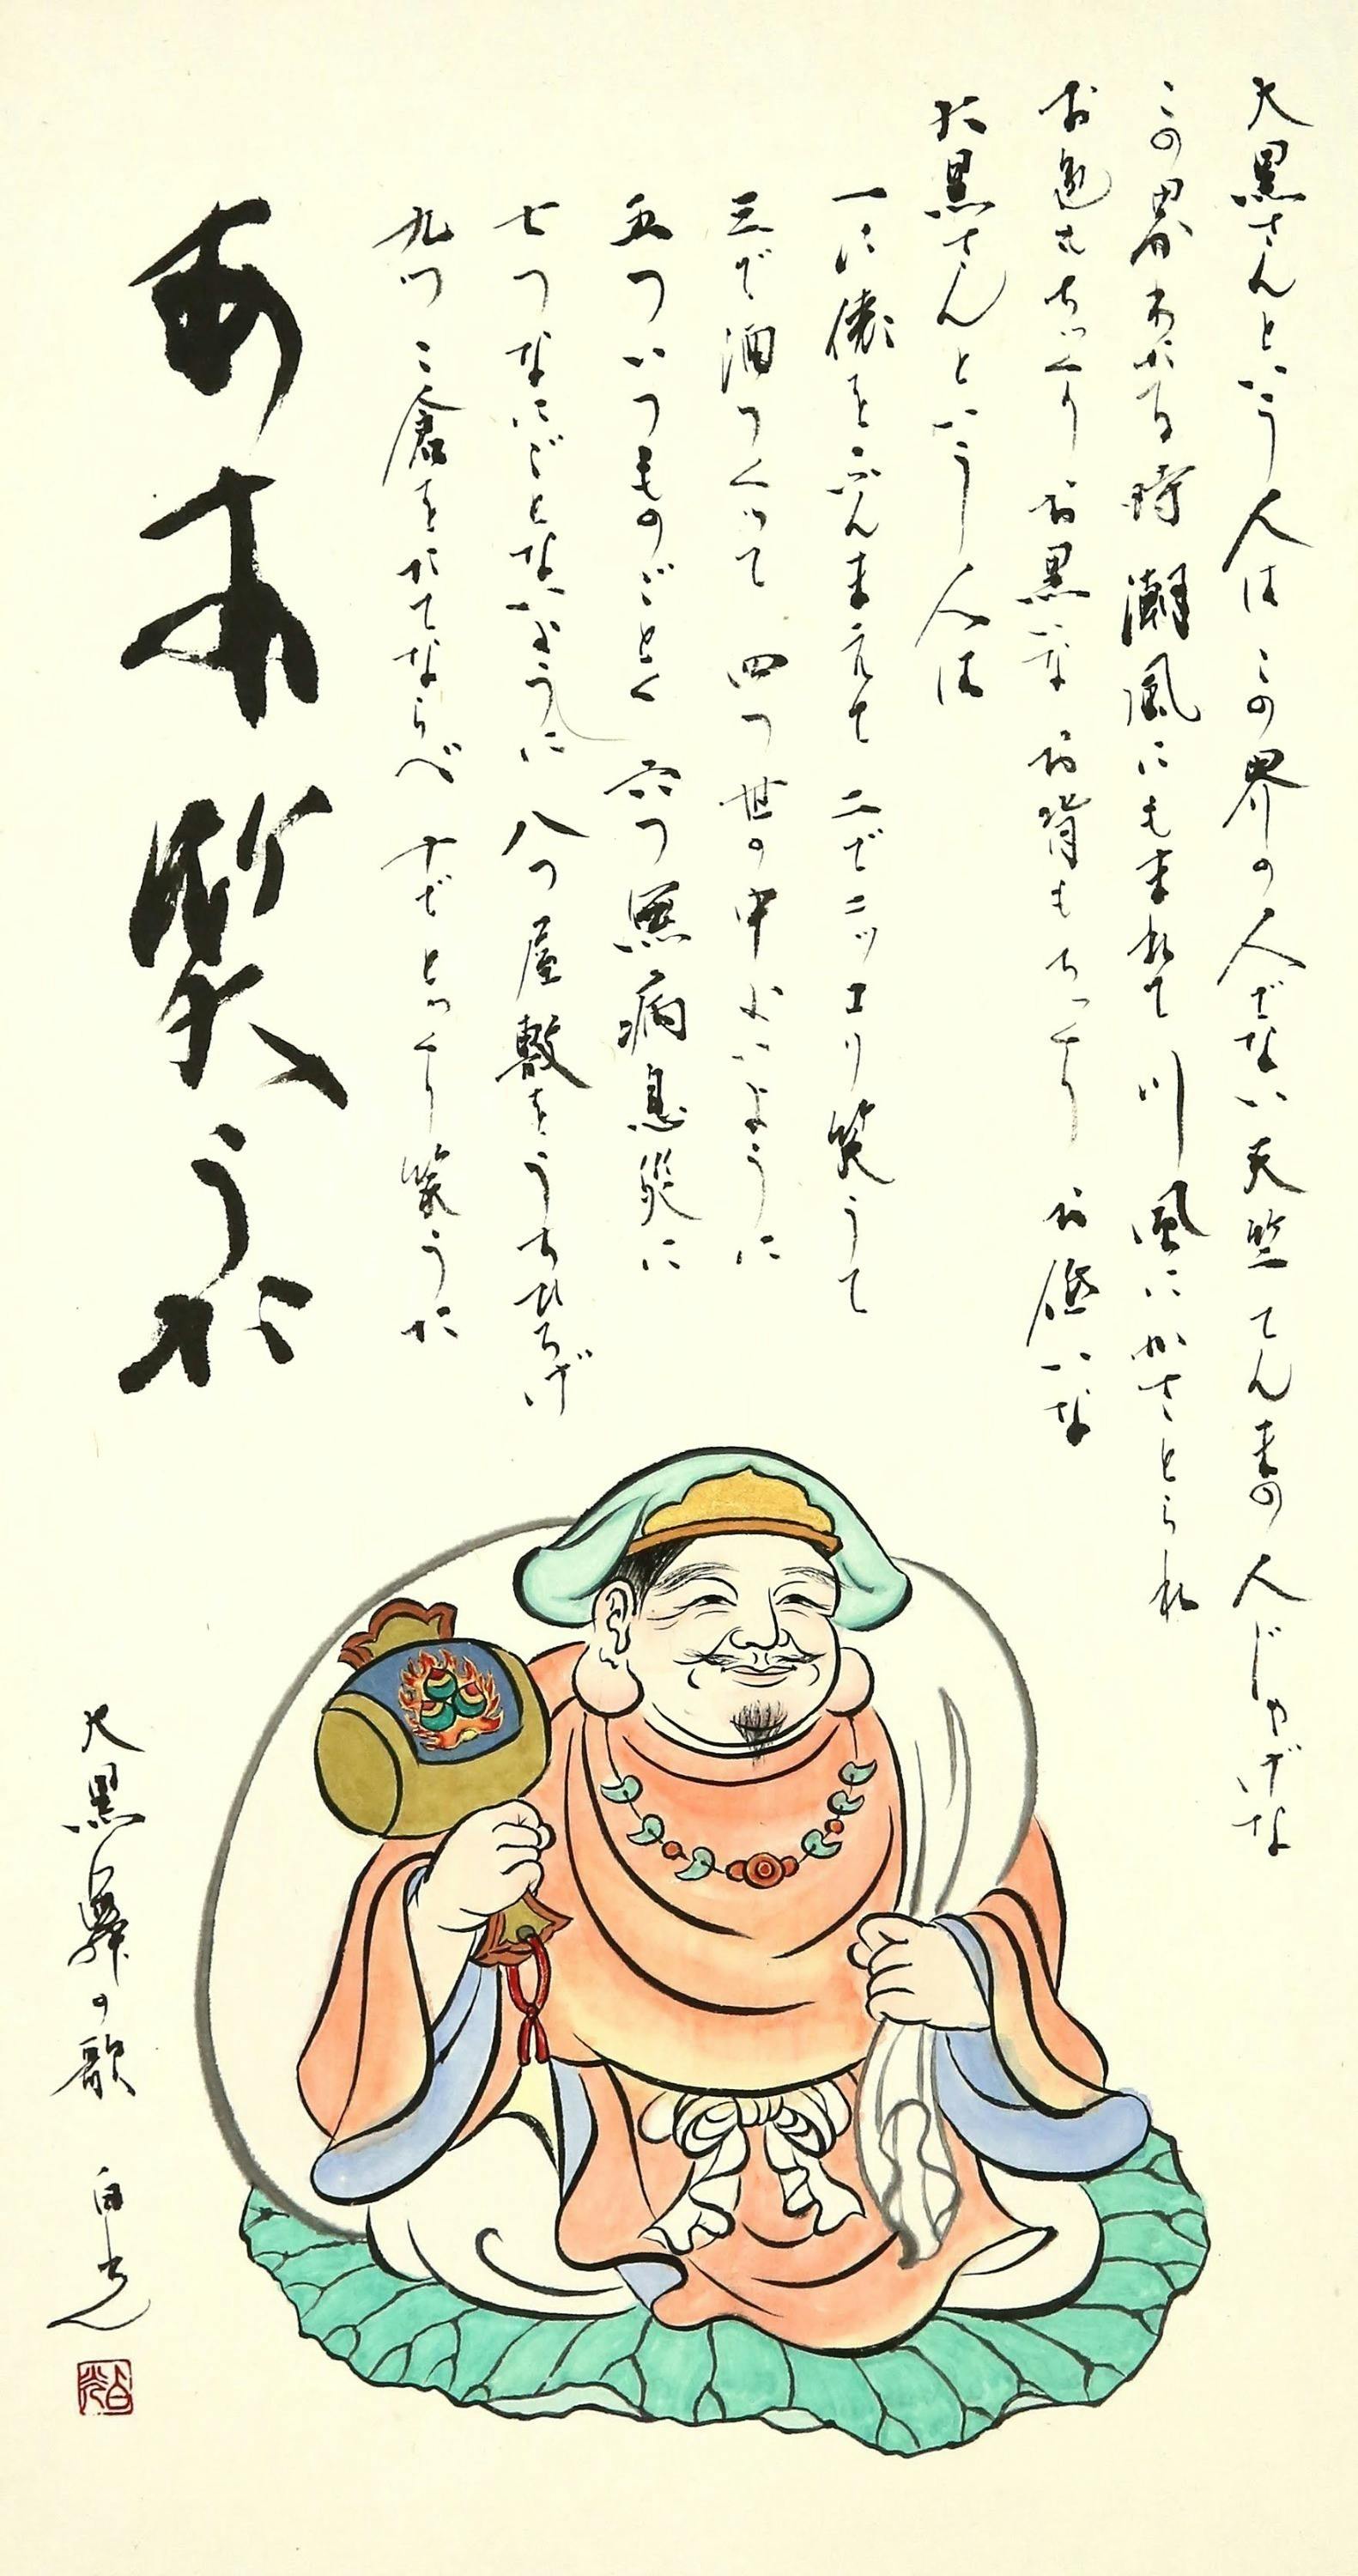 大黒さんという人は この界の人でない 天竺てんまの人じゃげな
この界わたる時 潮風にもまれて 川風にかさとられ
お色もちっくり お黒いな お背もちっくり お低いな
大黒さんという人は
一に俵をふんまえて 二でニッコリ笑うて
三で酒つくって 四つ世の中よいように
五ついつものごとく 六つ無病息災に
七つなにごとないように 八つ屋敷をうちひろげ
九つこ倉をたてならべ 十でとっくり笑うた
笑うた
大黒舞の歌 白光
白光